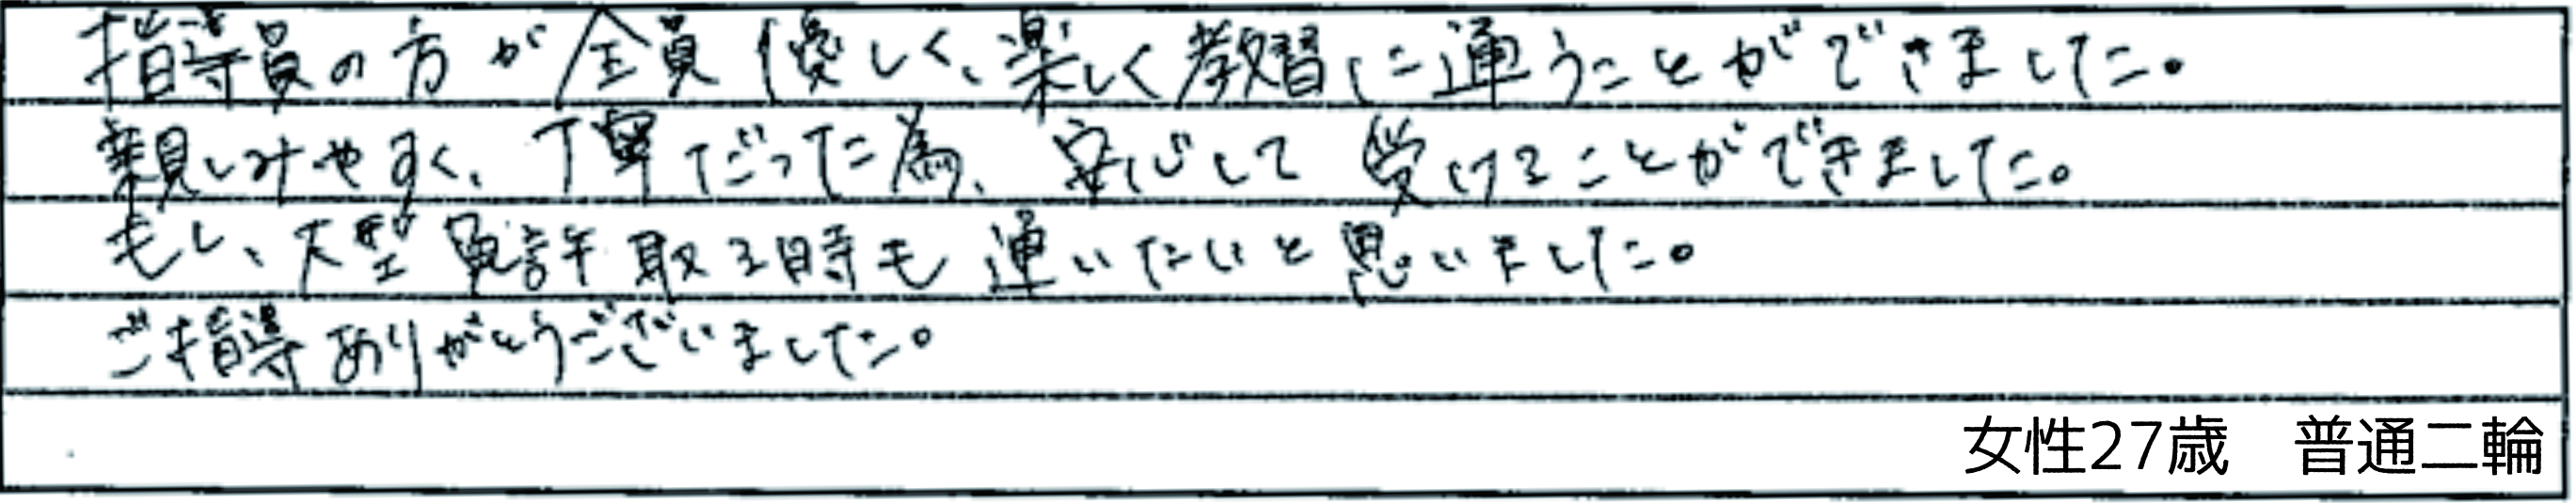 指導員の方が全員優しく、楽しく教習に通うことができました。
親しみやすく、丁寧だった為、安心して受けることができました。
もし、大型免許取る時も通いたいと思いました。
ご指導ありがとうございました。
女性27歳　普通二輪